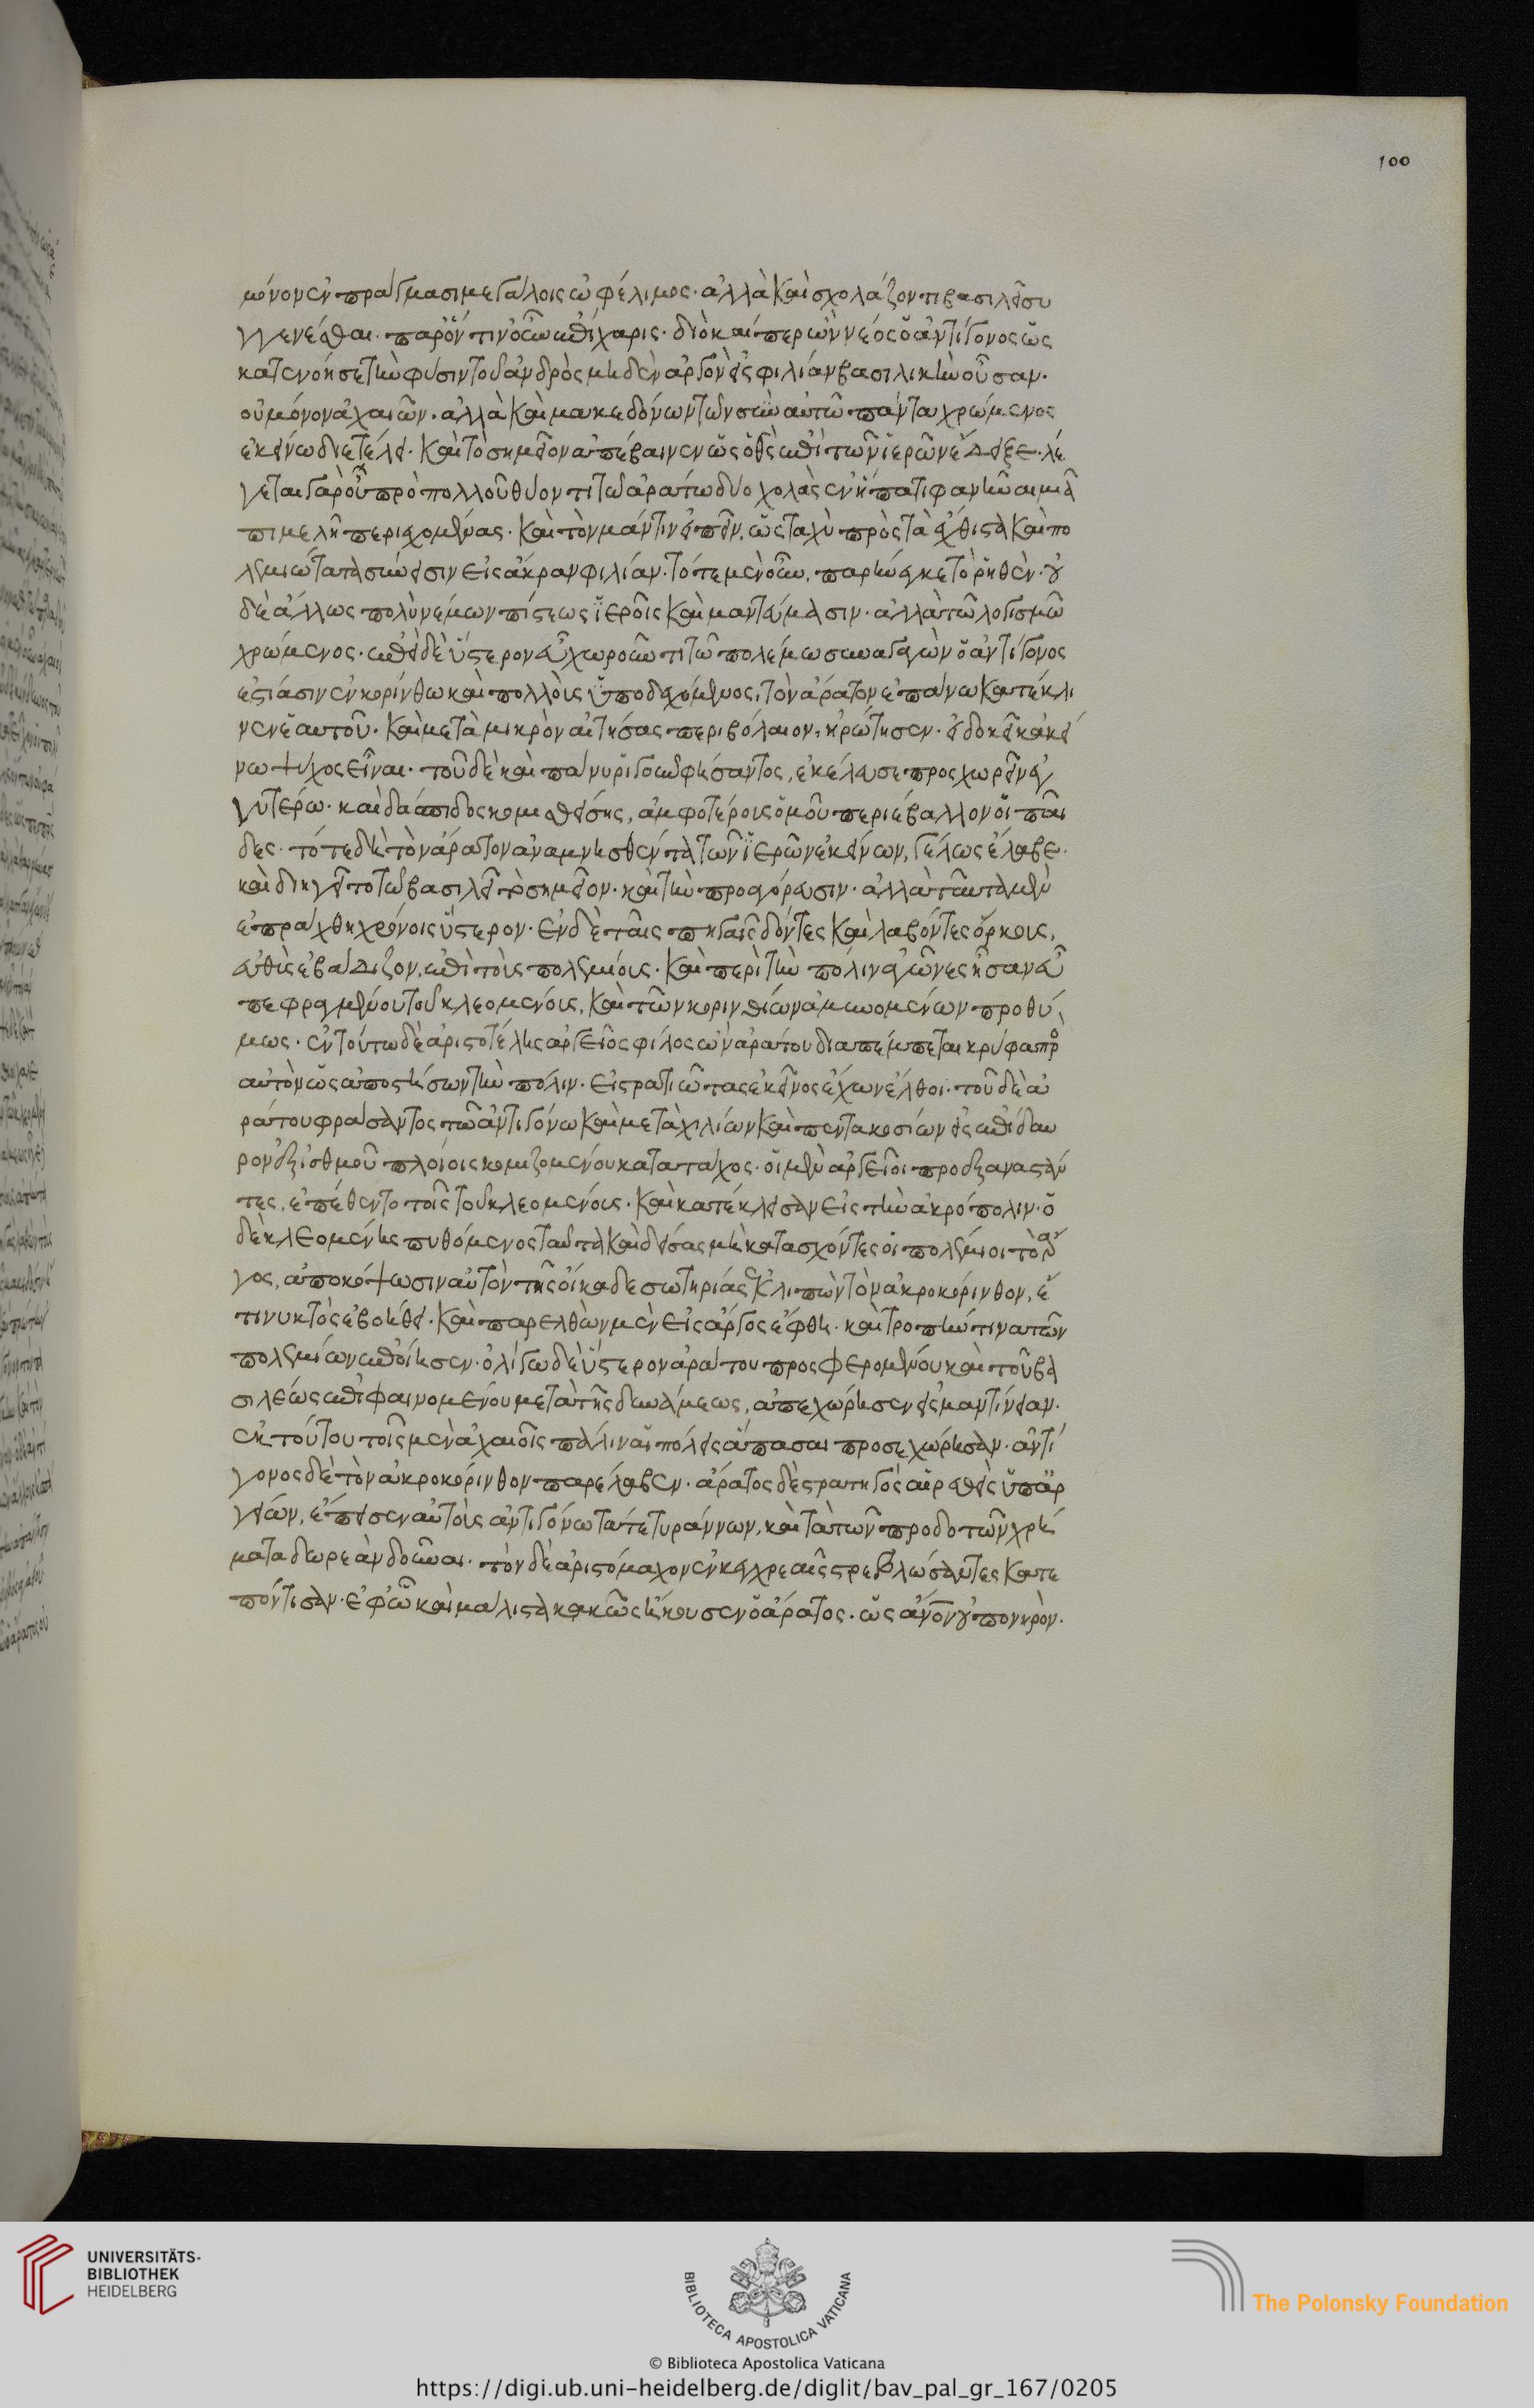 100
μόνον ἐν πράγμασι μεγάλοις ὠφέλιμος· ἀλλὰ καὶ σχολάζοντι βασιλεῖ συ
γγενέσθαι παρ' ὁντινοῦν ἐπίχαρις· διὸ καίπερ ὢν νέος ὁ ἀντίγονος ὡς
κατενόησε τὴν φύσιν τοῦ ἀνδρὸς μηδὲν ἀργὸν εἰς φιλίαν βασιλικὴν οὖσαν·
οὐ μόνον ἀχαιῶν· ἀλλὰ καὶ μακεδόνων τῶν σὺν αὐτῷ πάντα χρώμενος
ἐκείνῳ διετέλει· καὶ τὸ σημεῖον ἀπέβαινεν ὡς ὁ θεὸς ἐπὶ τῶν ἱερῶν ἔδειξε· λέ
γεται γὰρ οὐ πρὸ πολλοῦ θύοντι τῷ ἀράτῳ δύο χολὰς ἐν ἥπατι φανῆναι μιᾷ
πιμελῇ περιεχομένας· καὶ τὸν μάντιν εἰπεῖν, ὡς ταχὺ πρὸς τὰ ἔχθιστα καὶ πο
λεμιώτατα σύνεισιν εἰς ἄκραν φιλίαν· τότε μὲν οὖν, παρήνεγκε τὸ ῥηθὲν· οὐ
δὲ ἄλλως πολὺ νέμων πίστεως ἱεροῖς καὶ μαντεύμασιν· ἀλλὰ τῷ λογισμῷ
χρώμενος· ἐπεὶ δὲ ὕστερον εὖ χωροῦντι τῷ πολέμῳ συναγαγὼν ὁ ἀντίγονος
ἑστίασιν ἐν κορίνθῳ καὶ πολλοὺς ὑποδεχόμενος, τὸν ἄρατον ἐπάνω κατέκλι
νεν ἑαυτοῦ· καὶ μετὰ μικρὸν αἰτήσας περιβόλαιον, ἠρώτησεν· εἰ δοκεῖ κἀκεί
νῳ ψῦχος εἶναι· τοῦ δὲ καὶ πάνυ ῥιγοῦν φήσαντος, ἐκέλευσε προσχωρεῖν ἐγ
γυτέρω· καὶ δάπιδος κομισθείσης, ἀμφοτέροις ὁμοῦ περιέβαλλον οἱ παῖ
δες· τότε δὴ τὸν ἄρατον ἀναμνησθέντα τῶν ἱερῶν ἐκείνων, γέλως ἔλαβε·
καὶ διηγεῖτο τῷ βασιλεῖ τὸ σημεῖον· καὶ τὴν προαγόρευσιν· ἀλλὰ ταῦτα μὲν
ἐπράχθη χρόνοις ὕστερον· ἐν δὲ ταῖς πηγαῖς δόντες καὶ λαβόντες ὅρκους,
εὐθὺς ἐβάδιζον, ἐπὶ τοὺς πολεμίους· καὶ περὶ τὴν πόλιν ἀγῶνες ἦσαν εὖ
πεφραγμένου τοῦ κλεομένους, καὶ τῶν κορινθίων ἀμυνομένων προθύ
μως· ἐν τούτῳ δὲ ἀριστοτέλης ἀργεῖος φίλος ὢν ἀράτου διαπέμπεται κρύφα πρὸς
αὐτὸν ὡς ἀποστήσων τὴν πόλιν· εἰ στρατιώτας ἐκεῖνος ἔχων ἔλθοι· τοῦ δὲ ἀ
ράτου φράσαντος τῷ ἀντιγόνῳ καὶ μετὰ χιλίων καὶ πεντακοσίων εἰς ἐπίδαυ
ρον ἐξ ἰσθμοῦ πλοίοις κομιζομένου κατὰ τάχος· οἱ μὲν ἀργεῖοι προεξαναστάν
τες, ἐπέθεντο τοῖς τοῦ κλεομένους· καὶ κατέκλεισαν εἰς τὴν ἀκρόπολιν· ὁ
δὲ κλεομένης πυθόμενος ταῦτα καὶ δείσας μὴ κατασχόντες οἱ πολέμιοι τὸ ἄρ
γος, ἀποκόψωσιν αὐτὸν τῆς οἴκαδε σωτηρίας ἐκλιπὼν τὸν ἀκροκόρινθον, ἔ
τι νυκτὸς ἐβοήθει· καὶ παρελθὼν μὲν εἰς ἄργος ἔφθη· καὶ τροπήν τινα τῶν
πολεμίων ἐποίησεν· ὀλίγῳ δὲ ὕστερον ἀράτου προσφερομένου καὶ τοῦ βα
σιλέως ἐπιφαινομένου μετὰ τῆς δυνάμεως, ἀπεχώρησεν εἰς μαντίνειαν·
ἐκ τούτου τοῖς μὲν ἀχαιοῖς πάλιν αἱ πόλεις ἅπασαι προσεχώρησαν· ἀντί
γονος δὲ τὸν ἀκροκόρινθον παρέλαβεν· ἄρατος δὲ στρατηγὸς αἱρεθεὶς ὑπ' ἀρ
γείων, ἔπεισεν αὐτοὺς ἀντιγόνῳ τά τε τυράννων, καὶ τὰ τῶν προδοτῶν χρή
ματα δωρεὰν δοῦναι· τὸν δὲ ἀριστόμαχον ἐν κεγχρεαῖς στρεβλώσαντες κατε
πόντισαν· ἐφ' ᾧ καὶ μάλιστα κακῶς ἤκουσεν ὁ ἄρατος· ὡς ἄνον οὐ πονηρὸν·
UNIVERSITÄTS-
BIBLIOTHEK
HEIDELBERG
BIBLIOTECA APOSTOLICA VATICANA
The Polonsky Foundation
© Biblioteca Apostolica Vaticana
https://digi.ub.uni-heidelberg.de/diglit/bav_pal_gr_167/0205